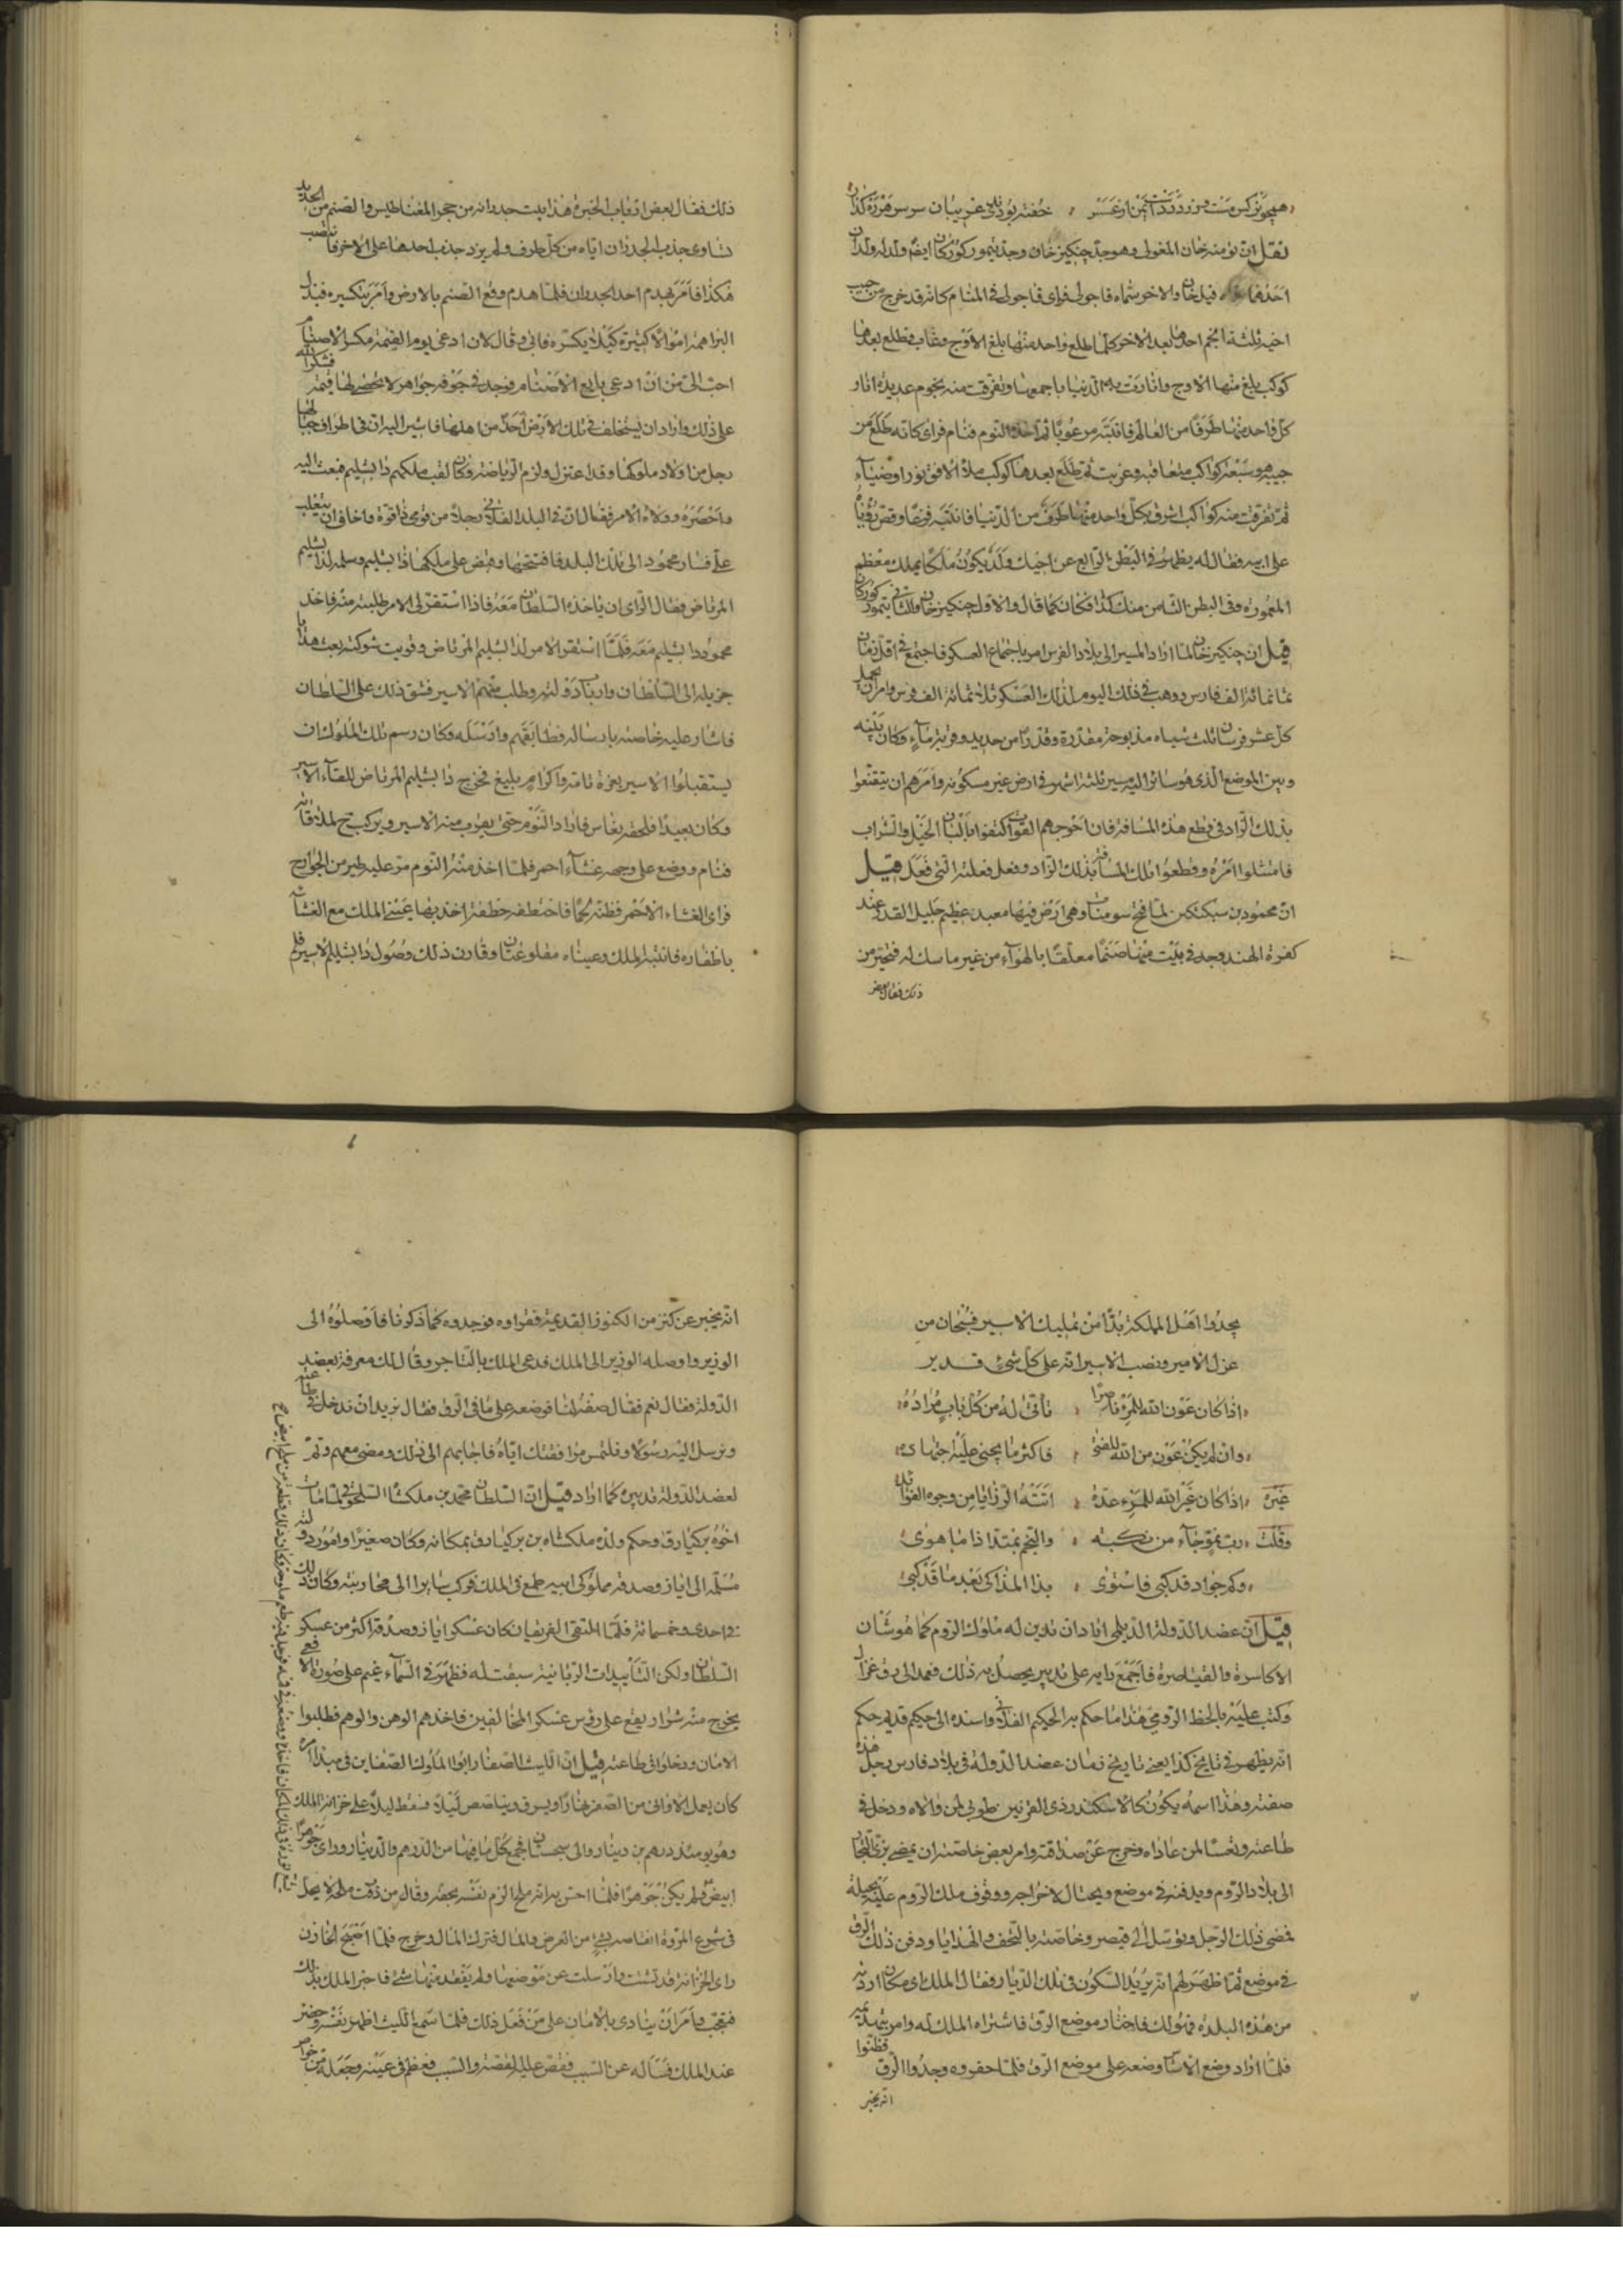 نقل ان تومنه خان المغولي وهو جد چنكيز خان وجد تيمور كوركان ايضا ولد له ولدان
احدهما قبل خان والاخر سماه قاجولي فراى قاجولي في المنام كانه قد خرج من جيب
اخيه ثلثة انجم احدها بعد الاخر كلما طلع واحد منها بلغ الاوج وغاب فطلع بعدها
كوكب بلغ منها الاوج وانارت به الدنيا باجمعها وتفرقت منه نجوم عديدة انار
كل واحد منها طرفا من العالم فانتبه مرعوبا ثم اخذه النوم فنام فراى كانه طلع من
جيبه هو سبعة كواكب متعاقبة وغربت ثم طلع بعدها كوكب ملأ الافق نورا وضياء
ثم تفرقت منه كواكب اشرق بكل واحد منها طرف من الدنيا فانتبه فزعا وقص رؤياه
على ابيه فقال له يظهر في البطن الرابع عن اخيك ولد يكون ملكا يملك معظم
المعمورة وفي البطن الثامن منك كذا فكان كما قال والاول چنكيز خان والثاني تيمور كوركان
قيل ان چنكيز خان لما اراد المسير الى بلاد الفرس امر باجتماع العسكر فاجتمع في اقل زمان
ثمانمائة الف فارس ووهب في ذلك اليوم لذلك العسكر ثلاثمائة الف فرس وامر ان يحمل
كل عشر فرسان ثلث شياه مذبوحة مقددة وقدرا من حديد وقربة ماء وكان بينه
وبين الموضع الذي هو سائر اليه مسير ثلثة اشهر في ارض غير مسكونه وامرهم ان يقنعوا
بذلك الزاد في قطع هذه المسافة فان احوجهم القوت اكتفوا بالبان الخيل والشراب
فامتثلوا امره وقطعوا تلك المسافة بذلك الزاد وفعل فعلته التي فعل قيل
ان محمود بن سبكتكين لما فتح سومنات وهي ارض فيها معبد عظيم جليل القدر عند
كفرة الهند وجد في بيت منها صنما معلقا بالهواء من غير ماسك له فتحير من
ذلك فقال بعض
ذلك فقال بعض ارباب الخبرة هذا بيت جدرانه من حجر المغناطيس والصنم من الحديد
تساوى جذب الجدران اياه من كل طرف ولم يزد جذب احدها على الاخر فانتصب
هكذا فامر بهدم احد الجدران فلما هدم وقع الصنم بالارض وامر بتكسيره فبذل
البراهمة اموالا كثيرة كيلا يكسره فابى وقال لان ادعى يوم القيمة مكسر الاصنام
احب الي من ان ادعى بايع الاصنام فوجد في جوفه جواهر لا يحصى لها قيمة فشكر الله
على ذلك واراد ان يستخلف في تلك الارض احدا من اهلها فاشير اليه ان في اطراف جبالها
رجل من اولاد ملوكها وقد اعتزل ولزم الرياضة وكان لقب ملكهم دابشليم فبعث اليه
واحضره وولاه الامر فقال ان في البلد الفلاني رجلا من قومي ذا قوة واخاف ان يتغلب
علي فسار محمود الى تلك البلد فافتتحها وقبض على ملكها دابشليم وسلمه لدابشليم
المرتاض فقال الراي ان ياخذه السلطان معه فاذا استقر لي الامر طلبته منه فاخذ
محمود دابشليم معه فلما استقر الامر لدابشليم المرتاض وقويت شوكته بعث هدايا
جزيلة الى السلطان وارباب دولته وطلب منهم الاسير فشق ذلك على السلطان
فاشار عليه خاصته بارساله فطابقهم وارسله وكان رسم تلك الملوك ان
يستقبلوا الاسير بعزة تامة واكرام بليغ فخرج دابشليم المرتاض للقاء الاسير
وكان بعيدا فلحقه نعاس فاراد النوم حتى يقرب منه الاسير ويركب لملاقاته
فنام ووضع على وجهه غشاء احمر فلما اخذ منه النوم مر عليه طير من الجوارح
فراى الغشاء الاحمر فظنه لحما فاختطفه خطفة اخذ بها عيني الملك مع الغشاء
باظفاره فانتبه الملك وعيناه مقلوعتان وقارن ذلك وصول دابشليم الاسير فلم
يجدوا اهل المملكة بدا من تمليك الاسير فسبحان من
عزل الامير ونصب الاسير انه على كل شئ قدير
اذا كان عون الله للمرء ناصرا ، تأتى له من كل باب مراده
وان لم يكن عون من الله للفتى ، فاكثر ما يجني عليه اجتهاده
غيره اذا كان غير الله للمرء عدة ، اتته الرزايا من وجوه الفوائد
وقلت رب نمو جاء من نكبه ، والنجم يمتد اذا ما هوى
وكم جواد قد كبى فاستوى ، بذا المذاكى بعد ما قد كبى
قيل ان عضد الدولة الديلمي اراد ان تدين له ملوك الروم كما هو شان
الاكاسرة والقياصرة فاجمع رايه على تدبير يحصل به ذلك فعمد الى رق غزال
وكتب عليه بالخط الرومي هذا ما حكم به الحكيم الفلاني واسنده الى حكيم قديم حكم
انه يظهر في تاريخ كذا يعني تاريخ زمان عضد الدولة في بلاد فارس رجل هذه
صفته وهذا اسمه يكون كالاسكندر ذي القرنين طوبى لمن والاه ودخل في
طاعته وتعسا لمن عاداه وخرج عن صداقته وامر بعض خاصته ان يمضى بزي التجار
الى بلاد الروم ويدفنه في موضع ويحتال لاخراجه ووقوف ملك الروم عليه بحيلة
فمضى ذلك الرجل وتوسل الى قيصر وخاصته بالتحف والهدايا ودفن ذلك الرق
في موضع ثم اظهر لهم انه يريد السكون في تلك الديار فقال الملك اي مكان اردته
من هذه البلده فهو لك فاختار موضع الرق فاشتراه الملك له وامر بتعميره
فلما اراد وضع الاساس وضعه على موضع الرق فلما حفروه وجدوا الرق فظنوا
انه يخبر
انه يخبر عن كنز من الكنوز القديمة فقراوه فوجدوه كما ذكرنا فاوصلوه الى
الوزير واوصله الوزير الى الملك فدعى الملك بالتاجر وقال لك معرفة بعضد
الدولة فقال نعم فقال صفه لنا فوصفه على ما في الرق فقال نريد ان ندخل في طاعته
ونرسل اليه رسولا ونلتمس مرافقتك اياه فاجابهم الى ذلك ومضى معهم وتم
لعضد الدولة تدبيره كما اراد قيل ان السلطان محمد بن ملكشا السلجوقي لما مات
اخوه بركيارق وحكم ولده ملكشاه بن بركيارق بمكانه وكان صغيرا وامور دولته
مسلمة الى اياز وصدقه مملوكي ابيه طمع في الملك فركب سايرا الى محاربته وكان ذلك
في احدى وخمسمائة فلما التقى الفريقان كان عسكر اياز وصدقة اكثر من عسكر
السلطان ولكن التأييدات الربانية سبقت له فظهر في السماء غيم على صورة الافعى
يخرج منه شرار يقع على رؤس عسكر المخالفين فاخذهم الوهن والوهم فطلبوا
الامان ودخلوا في طاعته قيل ان الليث الصفار ابو الملوك الصفارين في مبدأ امره
كان يعمل الاواني من الصفر نهارا ويسرق ويتلصص ليلا فسقط ليلا على خزانة الملك
وهو يومئذ درهم بن دينار والي سجستان فجمع كل ما فيها من الدرهم والدينار وراى جوهرا
ابيض ولم يكن جوهرا فلما احس به انه ملح الزم نفسه بحقه وقال من ذقت ملحه لا يحل
في شرع المروة انقاصه بشئ من العرض والمال فترك المال وخرج فلما اصبح الخازن
راى الخزانة قد تشتت وازسلت عن موضعها ولم يفقد منها شئ فاخبر الملك بذلك
فتعجب وامر ان ينادى بالامان على من فعل ذلك فلما سمع الليث اظهر نفسه وحضر
عند الملك فسأله عن السبب فقص عليه القصة والسبب فعظم في عينه وجعله من خواصه